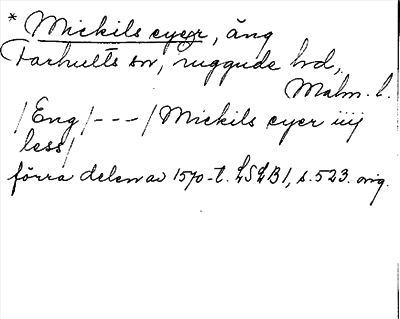 * Mickils eyer, äng
Farhults sn, Luggude hd,
Malm. l.
/Eng/---/Mickils eyer iiij
less/
förra delen av 1570-t. LSLB1, s. 523. orig.